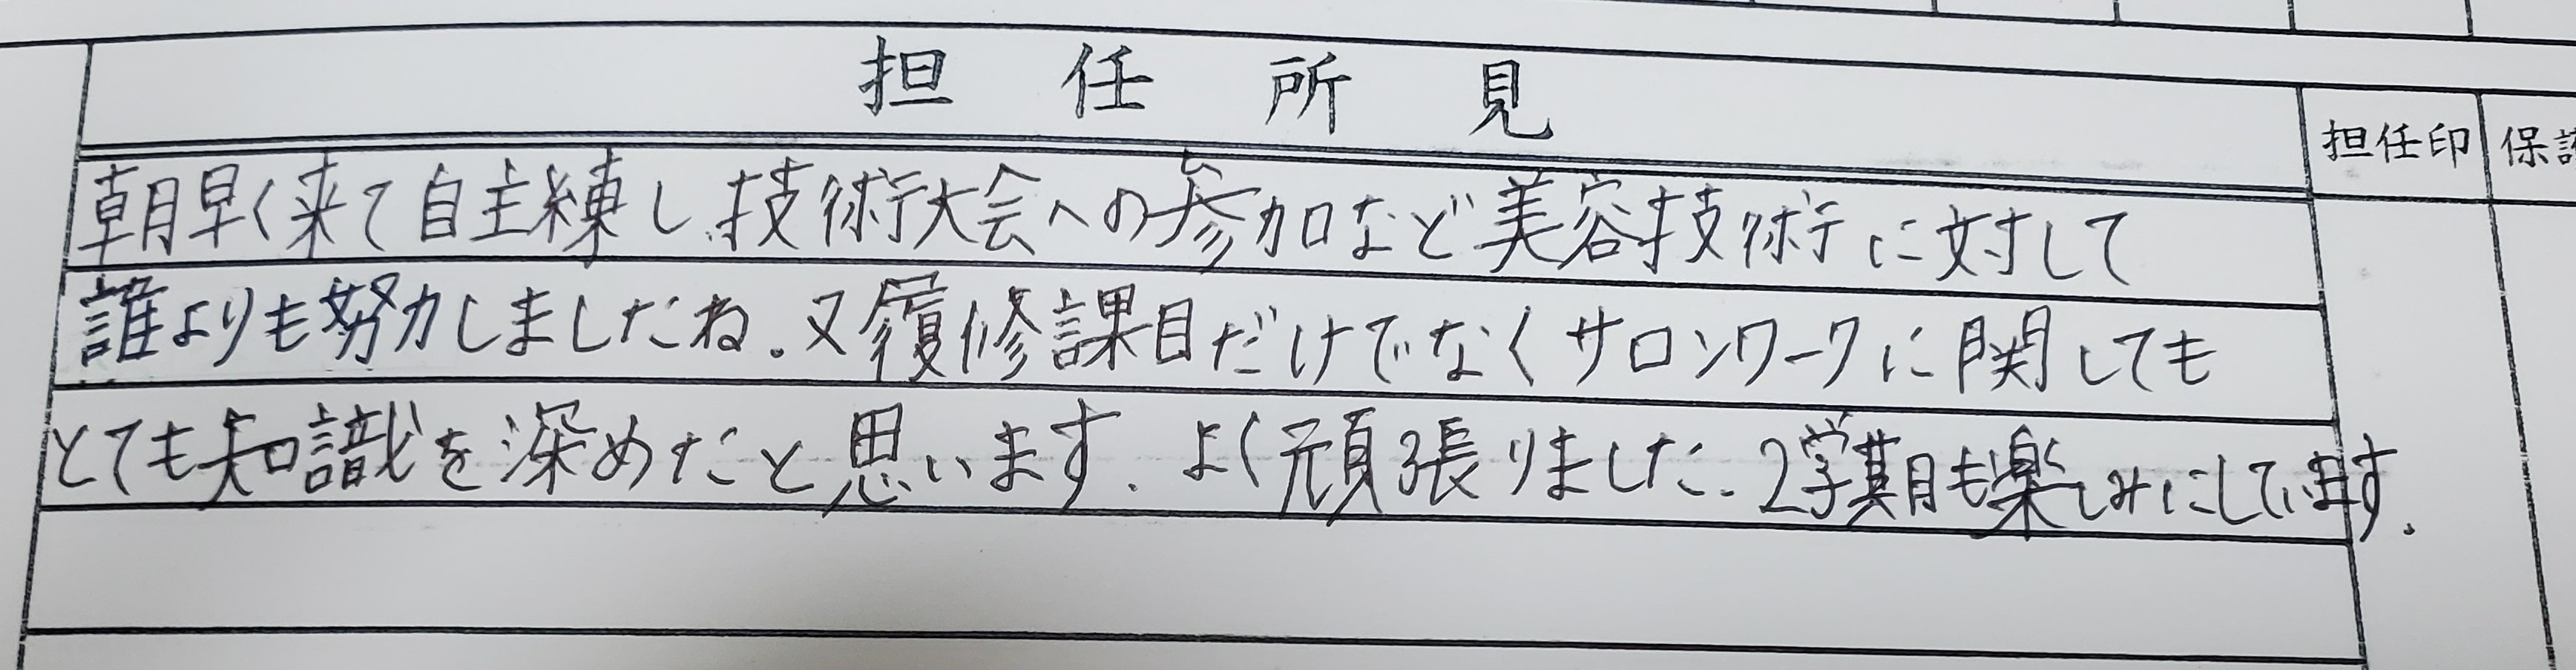 担任所見
担任印
保護
朝早く来て自主練し、技術大会への参加など美容技術に対して
誰よりも努力しましたね。又履修課目だけでなくサロンワークに関しても
とても知識を深めたと思います。よく頑張りました。2学期も楽しみにしています。